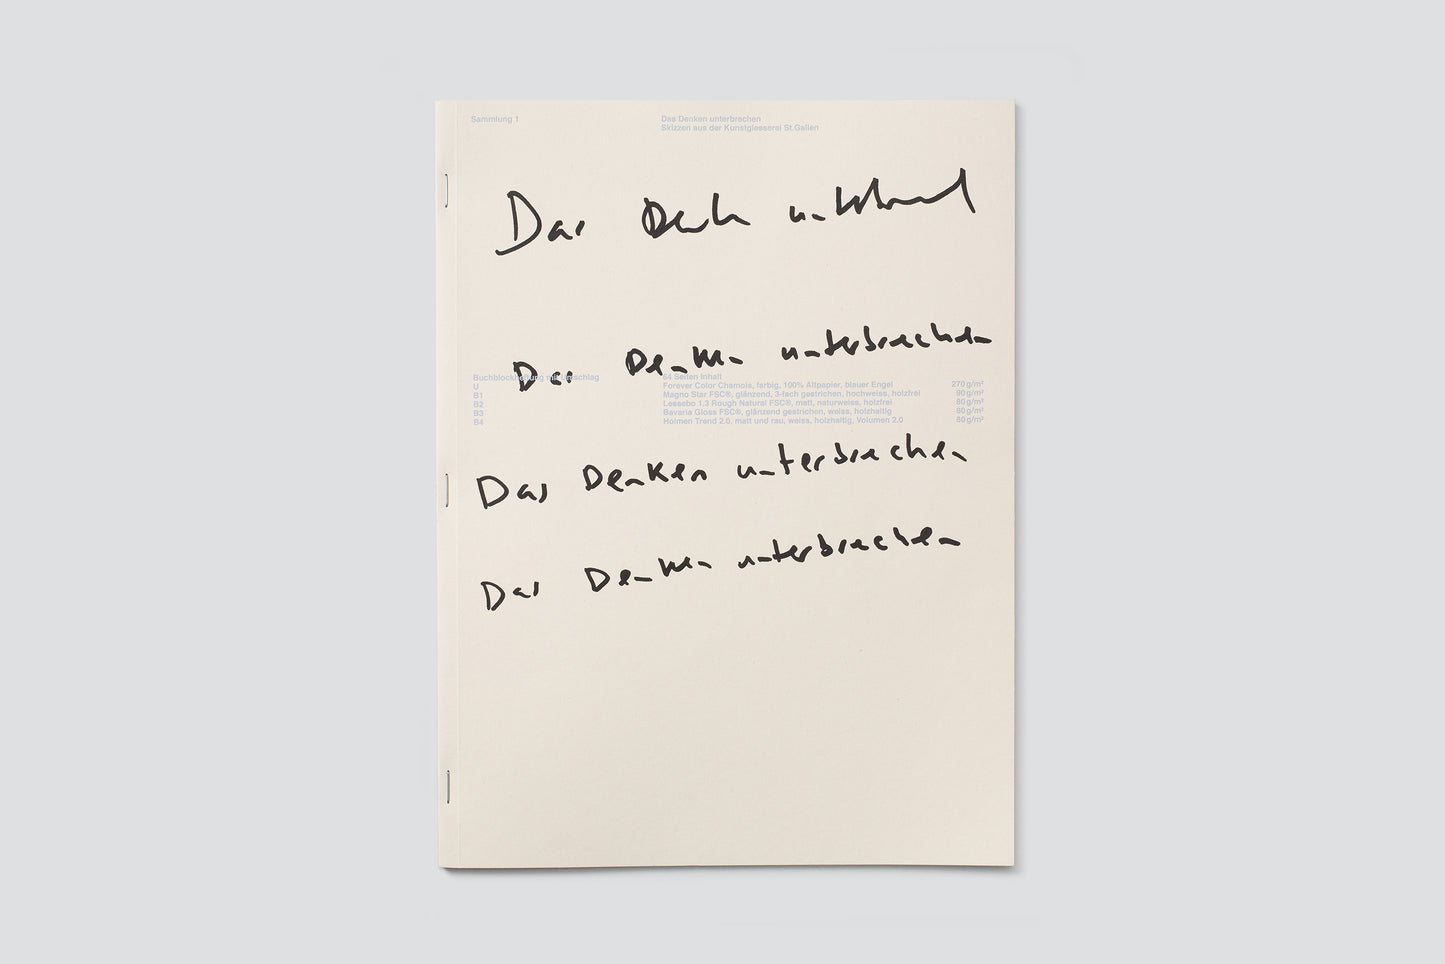 Sammlung 1
Das Denken unterbrechen
Skizzen aus der Kunstgiesserei St.Gallen
Das Denken unterbrechen
Das Denken unterbrechen
Buchblockheftung mit Umschlag 64 Seiten Inhalt
U Forever Color Chamois, farbig, 100% Altpapier, blauer Engel 270 g/m²
B1 Magno Star FSC®, glänzend, 3-fach gestrichen, hochweiss, holzfrei 90 g/m²
B2 Lessebo 1.3 Rough Natural FSC®, matt, naturweiss, holzfrei 80 g/m²
B3 Bavaria Gloss FSC®, glänzend gestrichen, weiss, holzhaltig 60 g/m²
B4 Holmen Trend 2.0, matt und rau, weiss, holzhaltig, Volumen 2.0 80 g/m²
Das Denken unterbrechen
Das Denken unterbrechen